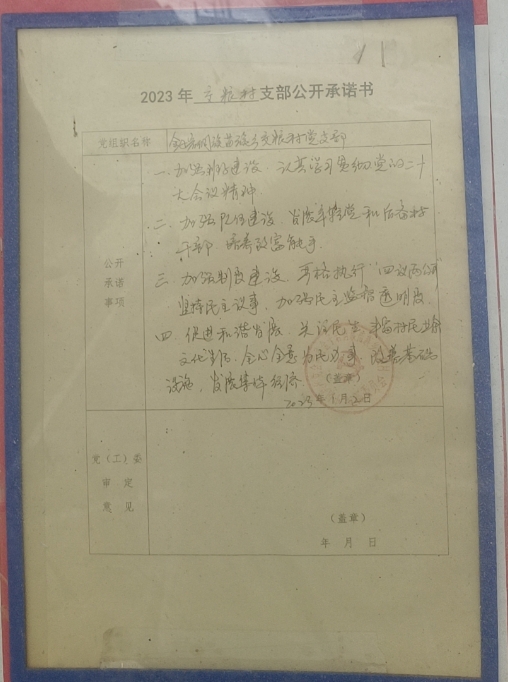 2023 年 交粮村支部公开承诺书
党组织名称 族苗族乡交粮村党支部
公开
承诺
事项
一、加强科学建设、认真学习贯彻党的二十
大会议精神.
二、加强队伍建设、发展年轻党和后备村
干部、培养致富能手.
三、加强制度建设、严格执行"四议两公开"
坚持民主议事、加强民主监督透明度.
四、促进和谐发展、关注民生、丰富村民业余
文化生活、全心全意为民办事、改善基础
设施、发展集体经济
（盖章）
2023年1月2日
党（工）委
审 定
意 见
（盖章）
年 月 日